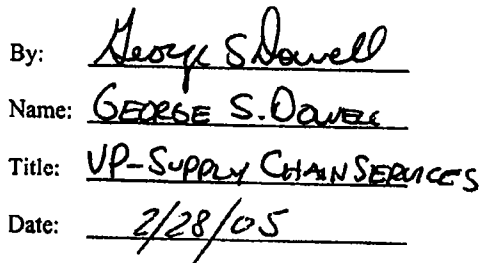 By: George S Dowell
Name: GEORGE S. DOWELL
Title: VP-SUPPLY CHAIN SERVICES
Date: 2/28/05